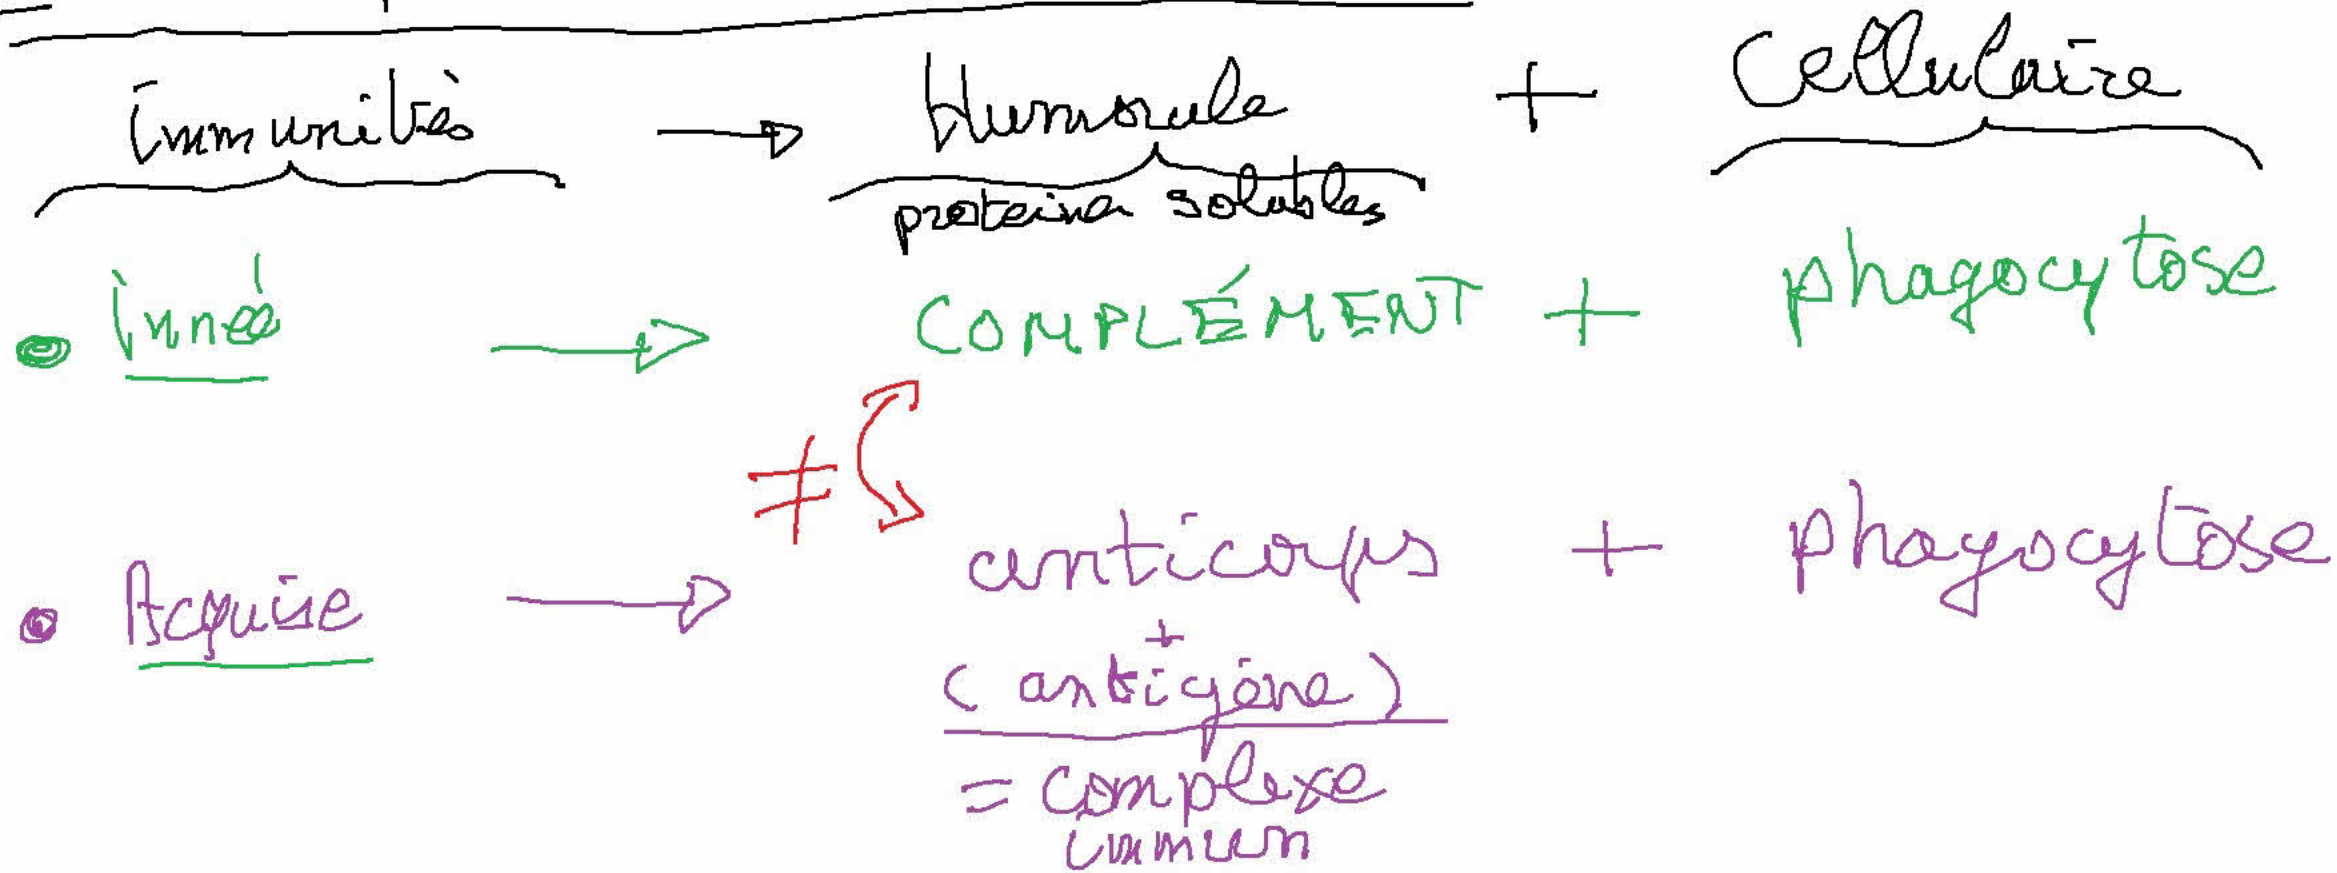 immunités → Humorale + Cellulaire
proteines solubles
• innée → COMPLÉMENT + phagocytose
≠
• Acquise → anticorps + phagocytose
+
(antigène)
= complexe
immun